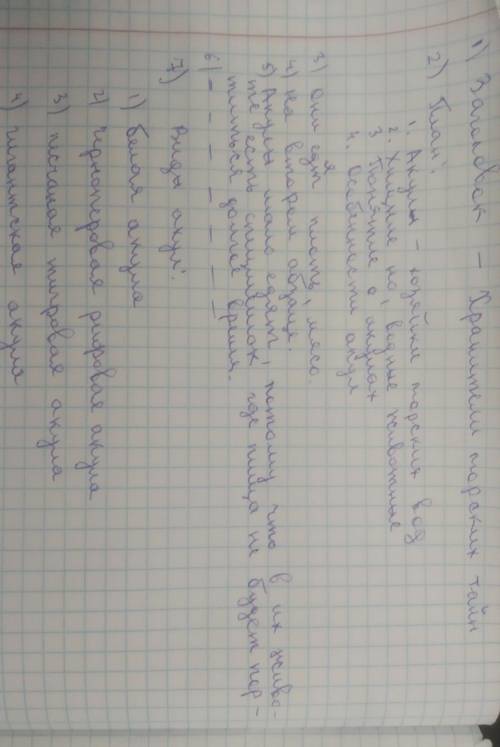 1) Заголовок – Хранители морских тайн
2) План:
1. Акулы – хозяйки морских вод
2. Хищные но, водные животные
3 Понятие о акулах
4. Особенности акул
3) Они едят плоть, мясо.
4) На втором абзаце.
5) Акулы мало едят, потому что в их живо-
те есть спец. мешок, где пища не будет пор-
титься долгое время.
6) – – – – – – –
7) Виды акул:
1) белая акула
2) Чёрноперовая рифовая акула
3) песчаная тигровая акула
4) гигантская акула